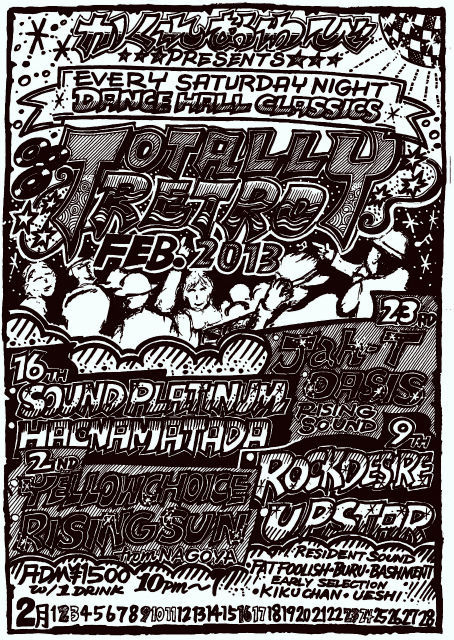 かくれんぼあそび
PRESENTS
EVERY SATURDAY NIGHT
DANCE HALL CLASSICS
TOTALLY
RETRO
FEB. 2013
23RD
Jah-T
OASIS
RISING
SOUND
16TH
SOUND PLATINUM
HACNAMJATADA
9TH
ROCKDESIRE
UPSTAR
2ND
YELLOWCHOICE
RISING SUN
from NAGOYA
RESIDENT SOUND
FAT FOOLISH・BURU・BASHMENT
EARLY SELECTION
・KIKUCHAN・UESHI・
ADM¥1500
w/1 DRINK
10pm~
2月 1 2 3 4・5・6 7 8 9 10 11 12 13 14 15 16 17 18 19 20 21 22 23 24 25 26 27 28